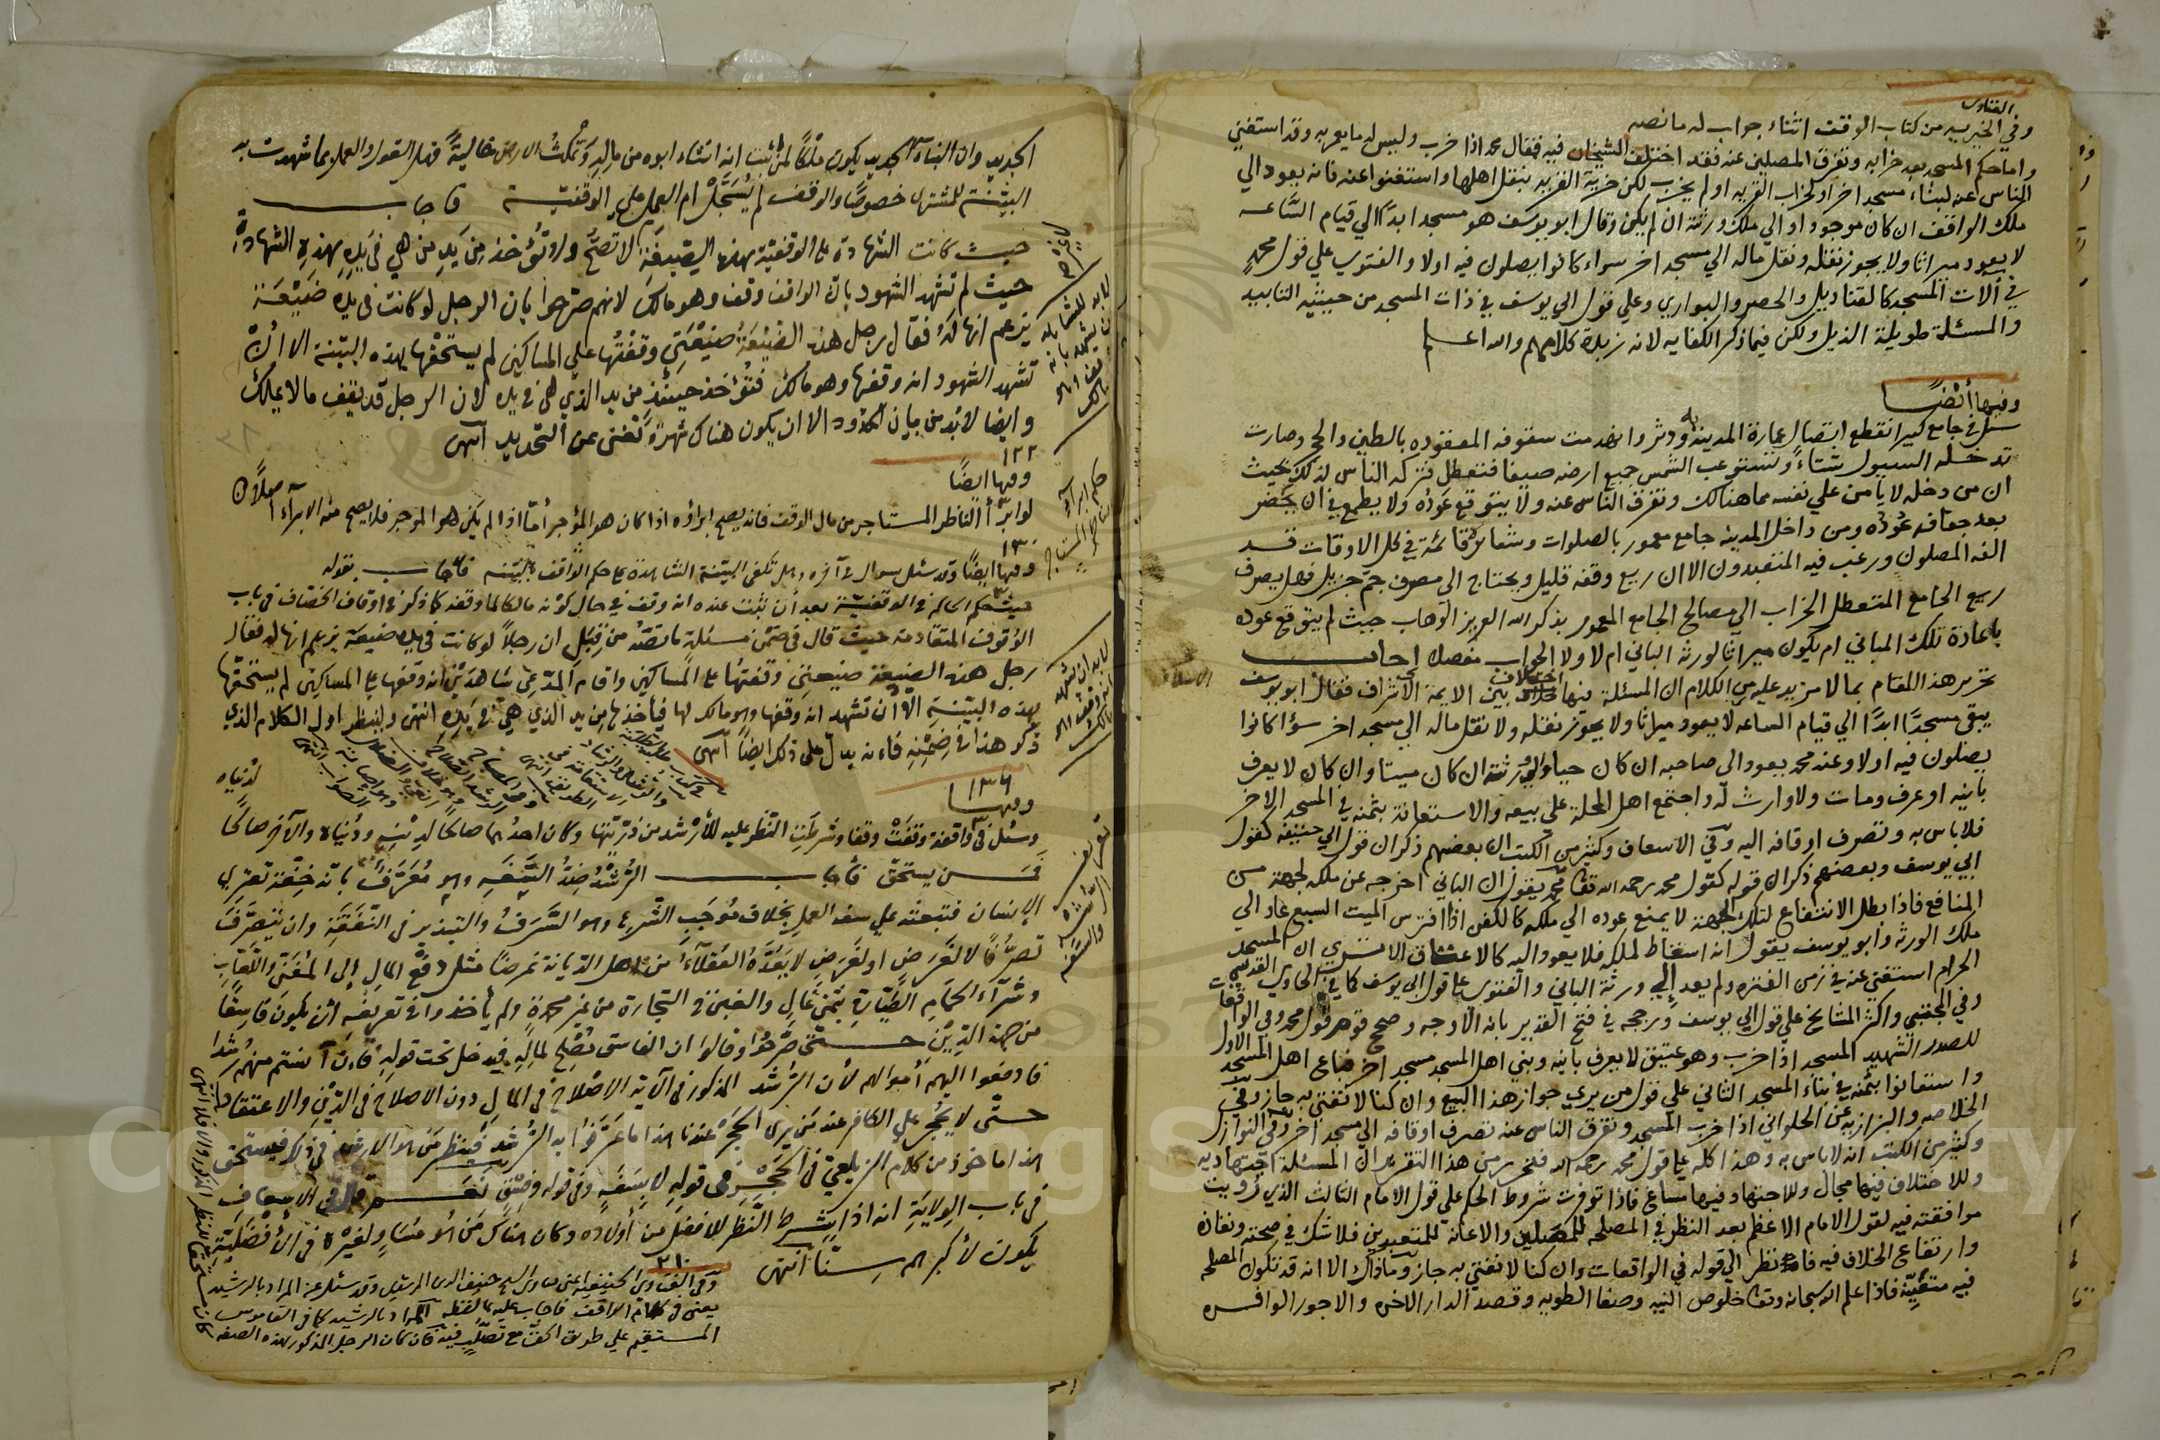 وفي الفتاوى الخيرية من كتاب الوقف اثناء جواب له ما نصه
واما حكم المسجد بعد خرابه وتفرق المصلين عنه فقد اختلف الشيخان فيه فقال محمد اذا خرب وليس له ما يعمر به وقد استغني
الناس عنه لبناء مسجد اخر او لخراب القرية او لم يخرب لكن خربت القرية بنقل اهلها واستغنوا عنه فانه يعود الى
ملك الواقف ان كان موجودا والي ملك ورثته ان لم يكن وقال ابو يوسف هو مسجد ابدًا الي قيام الساعة
لا يعود ميراثا ولا يجوز نقله ونقل ماله الي مسجد اخر سواء كانوا يصلون فيه اولا والفتوى علي قول محمد
في آلات المسجد كالقناديل والحصر والبواري وعلي قول ابي يوسف في ذات المسجد من حيثية التابيد
والمسئلة طويلة الذيل ولكن فيما ذكر الكفاية لانه زبدة كلامهم والله اعلم
وفيها أيضًا
سئل في جامع كبير انقطع اتصال عمارة المدينة به ودثر وانهدمت سقوفه المعقوده بالطين والحجر وصارت
تدخله السيول شتاءً وتستوعب الشمس جميع ارضه صيفا فتعطل فتركه الناس لذلك بحيث
ان من دخله لا يأمن علي نفسه مما هنالك وتفرق الناس عنه ولا يتوقع عَودُه ولا يطمع في ان يحضر
بعد جفافه عُودُه ومن داخل المدينة جامع معمور بالصلوات وشعائره قائمة في كل الاوقات قد
الفه المصلون ورغب فيه المتعبدون الا ان ريع وقفه قليل ويحتاج الى مصرف جمّ جزيل فهل يصرف
ريع الجامع المتعطل الخراب الي مصالح الجامع المعمور بذكر الله العزيز الوهاب حيث لم يتوقع عوده
باعادة تلك المباني ام يكون ميراثا لورثة الباني ام لا ولا الجواب مفصلا اجاب
تحرير هذا المقام بما لا مزيد عليه من الكلام ان المسئلة فيها اختلاف بين الايمة الاشراف فقال ابو يوسف
يبقى مسجدًا ابدًا الي قيام الساعة لا يعود ميراثا ولا يجوز نقله ولا نقل ماله الي مسجد اخر سواء كانوا
يصلون فيه اولا وعند محمد يعود الى صاحبه ان كان حيا والي ورثته ان كان ميتا وان كان لا يعرف
بانيه او عرف ومات ولا وارث له واجتمع اهل المحلة علي بيعه والاستعانة بثمنه في المسجد الاخر
فلا باس به وتصرف اوقافه اليه وفي الاسعاف وكثير من الكتب ان بعضهم ذكر ان قول ابي حنيفة كقول
ابي يوسف وبعضهم ذكر ان قوله كقول محمد رحمه الله تعالى فمحمد يقول ان الباني اخرجه عن ملكه لجهة من
المنافع فاذا بطل الانتفاع لتلك الجهة لا يمنع عوده الي ملكه كالكفن اذا افترس الميت السبع عاد الي
ملك الورثة وابو يوسف يقول انه اسقاط لملكه فلا يعود اليه كالاعتاق الا ترى ان المسجد
الحرام استغني عنه في زمن الفترة ولم يعد الي ورثة الباني والفتوى علي قول ابي يوسف كما في الحاوي القدسي
وفي المجتبي واكثر المشايخ علي قول ابي يوسف ورجحه في فتح القدير بانه الاوجه وصحح قوم قول محمد وفي الواقعات
للصدر الشهيد المسجد اذا خرب وهو عتيق لا يعرف بانيه وبني اهل المسجد مسجد اخر فباع اهل المسجد الاول
واستعانوا بثمنه في بناء المسجد الثاني علي قول من يري جواز هذا البيع وان كنا لا نفتي به جاز وفي
الخلاصة والبزازية عن الحلواني اذا خرب المسجد وتفرق الناس عنه تصرف اوقافه الي مسجد اخر وفي النوازل
وكثير من الكتب انه لا باس به وهذا كله علي قول محمد رحمه الله فتحرر من هذا التقرير ان المسئلة اجتهادية
وللاختلاف فيها مجال وللاجتهاد فيها مساغ فاذا توفرت شروط الحكم علي قول الامام الثالث الذي رويت
موافقته فيه لقول الامام الاعظم بعد النظر في المصلحة للمصلين والاعانة للمتعبدين فلا شك في صحته ونفاذه
وارتفاع الخلاف فيه فانظر الي قوله في الواقعات وان كنا لا نفتي به جاز وما ذاك الا انه قد تكون المصلحة
فيه متعيّنة فاذا علم الله سبحانه وتعالى خلوص النية وصفا الطوية وقصد الدار الاخرة والاجور الوافره
الجديد وان البناء الجديد يكون ملكًا لمن يثبت انه انشاء ابوه من مالِهِ وتمكث الارض خاليةً فهل القول والعمل بما شهدت به
البيّنة للمشتري خصوصًا والوقف لم يُسَجَّل ام العمل على الوقفية فاجاب
حيث كانت الشهادة على الوقفيّة بهذه الصيغة لا تصحّ ولا تؤخذ من يَدِ من هي في يَدِهِ بهذِهِ الشهادةِ
حيث لم تشهد الشهود بان الواقف وقف وهو مالك لانهم صرحوا بان الرجل لو كانت في يده ضيعَة
يزعم انها لهُ فقال رجل هذه الضيعَةُ ضيعَتي وقفتُها علي المساكين لم يستحقها بهذه البينة الا انْ
تشهد الشهود انه وقفها وهو مالك فتؤخذ حينئذٍ من يد الذي هي في يده لان الرجل قد يقف ما لا يملك
وايضا لا بُد من بيان الحدود الا ان يكون هناك شهرةٌ تُغني عن التحديد انتهى
١٢٢
وفيها ايضًا
لو ابرأ الناظر المستاجر من مال الوقف فانه يصح ابراؤه اذا كان هو المؤجر أمّا اذا لم يكن هو الموجر فلا يصح منه الابراء اصلًا
١٣٠
وفيها ايضًا وقد سئل سوال في آخره وهل تكفي البيّنة الشاهدة على حكم الواقف بالبيّنه فاجاب بقوله
حيث حكم الحاكم في الوقفيّة بعد أن ثبت عنده انه وقف في حال كونه مالكا لما وقفه كما ذكر في اوقاف الخصاف في باب
الوُقوف المتقادمة حيث قال في ضمن مسئلةٍ ما نصّه من قبل ان رجلًا لو كانت في يده ضيعة يزعم انها له فقال
رجل هذه الضيعة ضيعتي وقفتُها على المساكين واقام المدّعي شاهدَيْن انه وقفها على المساكين لم يستحقها
بهذه البيّنة الا ان تشهد انه وقفها وهو مالك لها فيأخذها من يد الذي هي في يَدِهِ انتهى ولينظر اول الكلام الذي
ذكر هذا في ضِمْنِهِ فانه يدلّ على ذلك ايضًا انتهى
١٣٦
وفيها
وسئل في واقفة وقفَتْ وقفا وشرطَت النّظر عليه للأرشد من ذرّيّتها وكان احدُهما صالحًا لدِينِهِ ودُنياه والآخر صالحًا لدنياه
فمَن يستحقّ فاجاب الرُّشْدُ ضدُّ السَّفَهِ وهو مُعَرَّفٌ بانّه خِفّة تعتري
الإنسان فتبعثُه علي سفه العمل بخلاف مُوجَب الشّرع وهو السَّرَفُ والتبذير في النّفقَةِ وان يتصَرّفَ
تصرُّفًا لا لغَرَض او لغَرَضٍ لا يَعُدّهُ العُقلاءُ من اهل الديانة غرضًا مثل دفعِ المالِ إلى المُغنّي واللّعّابِ
وشرآءِ الحمام الطَّيّارةِ بثمن غالٍ والغبن في التجارة من غير محمدةٍ ولم يأخذوا في تعريفِه أن يكونَ فاسِقًا
من جهة الدِّيْن حتى صَرّحُوا وقالوا ان الفاسق مُصلِح لمالِهِ فيدخل تحت قوله فان آنستم منهم رُشدا
فادفعوا اليهم أموالهم لأن الرُّشد المذكور في الآية الاصْلاح في المالِ دون الاصلاح في الدِّيْنِ والاعتقاد
حتّى لا يُحْجر علي الكافر عند من يرى الحَجْرَ عندنا هذا ما عَرّفوا به الرُّشد فينظر من هو الارشد في ذلك فيستحق
هذا ماخوذ من كلام الزيلعي في الحَجْرِ في قولهِ لا بسَفَهٍ وفي قوله وفِسْقٍ نعم قال في الاسعاف
في باب الولايَةِ انه اذا شرط النَّظر للافضل من أولاده وكان هناك مَن هو مُساوٍ لغيْرهِ في الأَفْضليّةِ
يكون لأكبرهم سنًّا انتهى
٢١٠
وفي الفتاوى
يعني في كلام الواقف فاجاب عليه بالفظه المراد بالرشيد كما في القاموس
المستقيم علي طريق الحق مع تصلّبٍ فيه فان كان الرجل المذكور بهذه الصفة